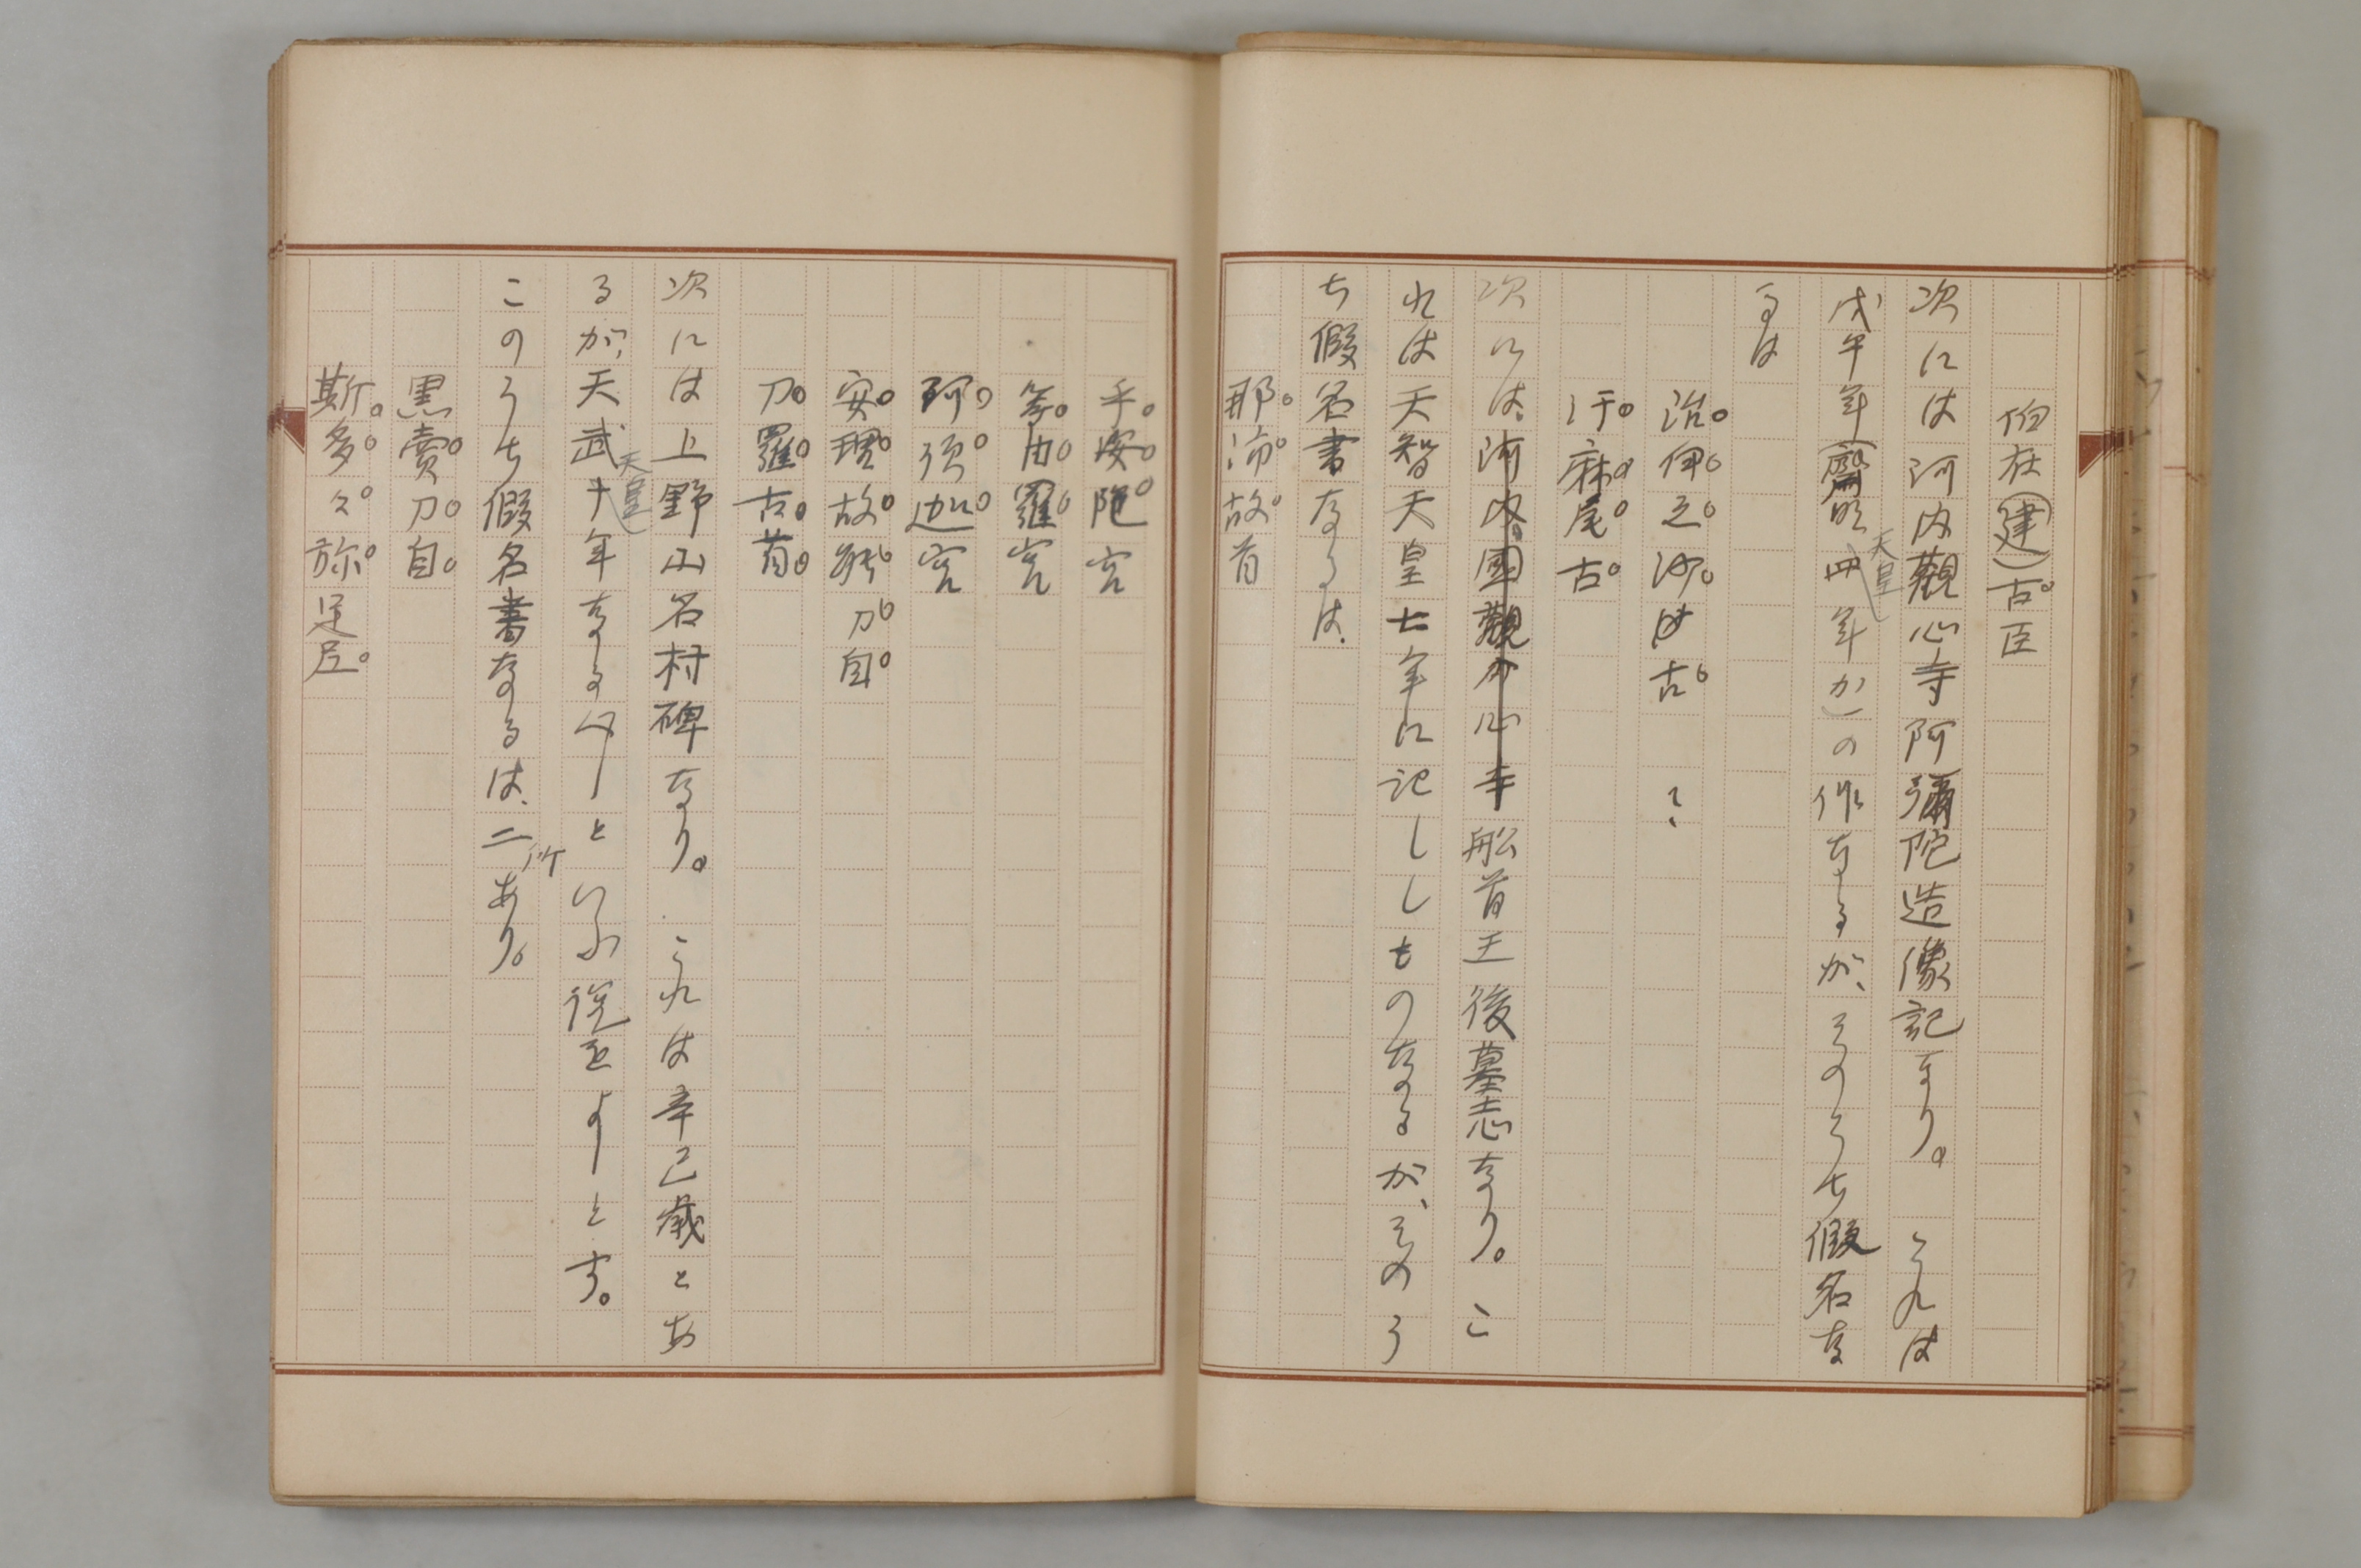 伯在(建)古臣
次には河内觀心寺阿彌陀造像記なり。これは
戊午年(齋明天皇四年か)の作なるが、そのうち假名な
るは
治伊之沙古
汙麻尾古
次には、河内國觀心寺船首王後墓志なり。こ
れは天智天皇七年に記ししものなるが、そのう
ち假名書なるは、
那沛故首
乎娑陁宮
等由羅宮
阿須迦宮
安理故能刀自
刀羅古首
次には上野山名村碑なり。これは辛己歳とあ
るが、天武天皇十年なるべしといふ説をよしとす。
このうち假名書なるは、二所あり。
黒賣刀自
斯多々弥足尼